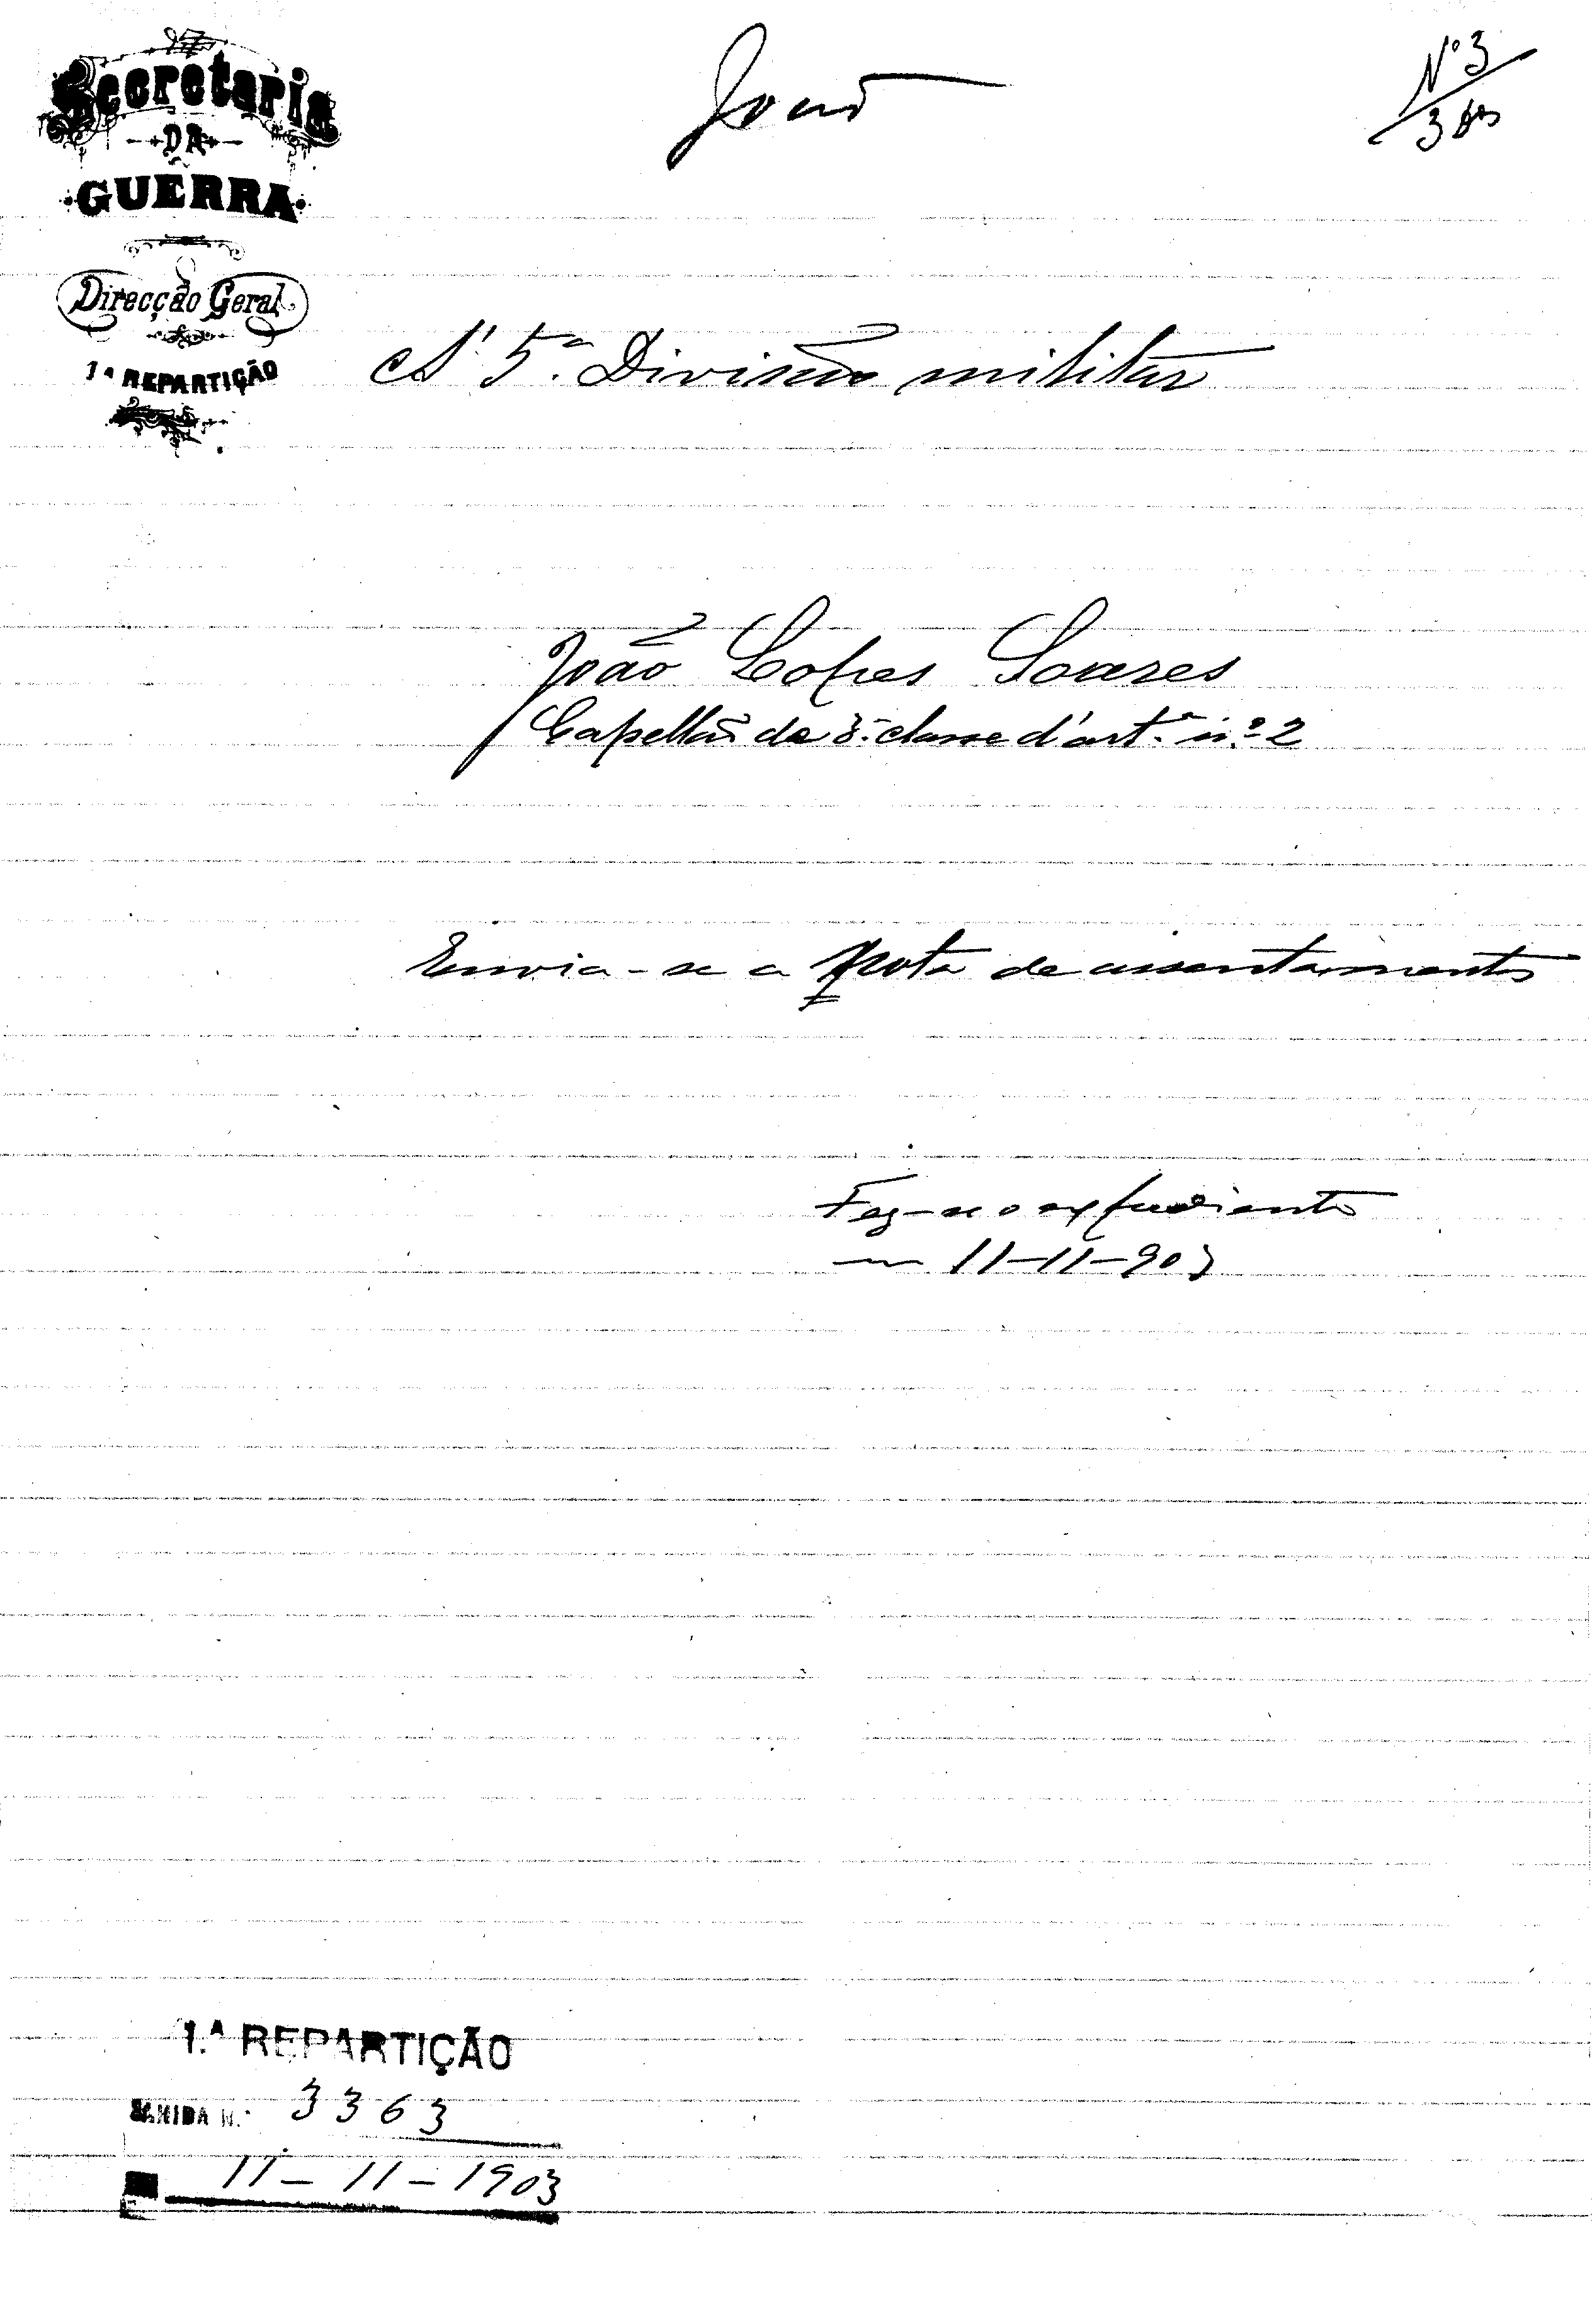 Secretaria
DA
GUERRA
Direcção Geral
1ª REPARTIÇÃO
João
Nº 3
3
A' 5ª Divisão militar
João Lopes Soares
Capellão de 3ª classe d'artª n.º 2
Envia-se a nota de assentamentos
Fez-se o expediente
em 11-11-903
1.ª REPARTIÇÃO
SAHIDA N.º 3363
11-11-1903